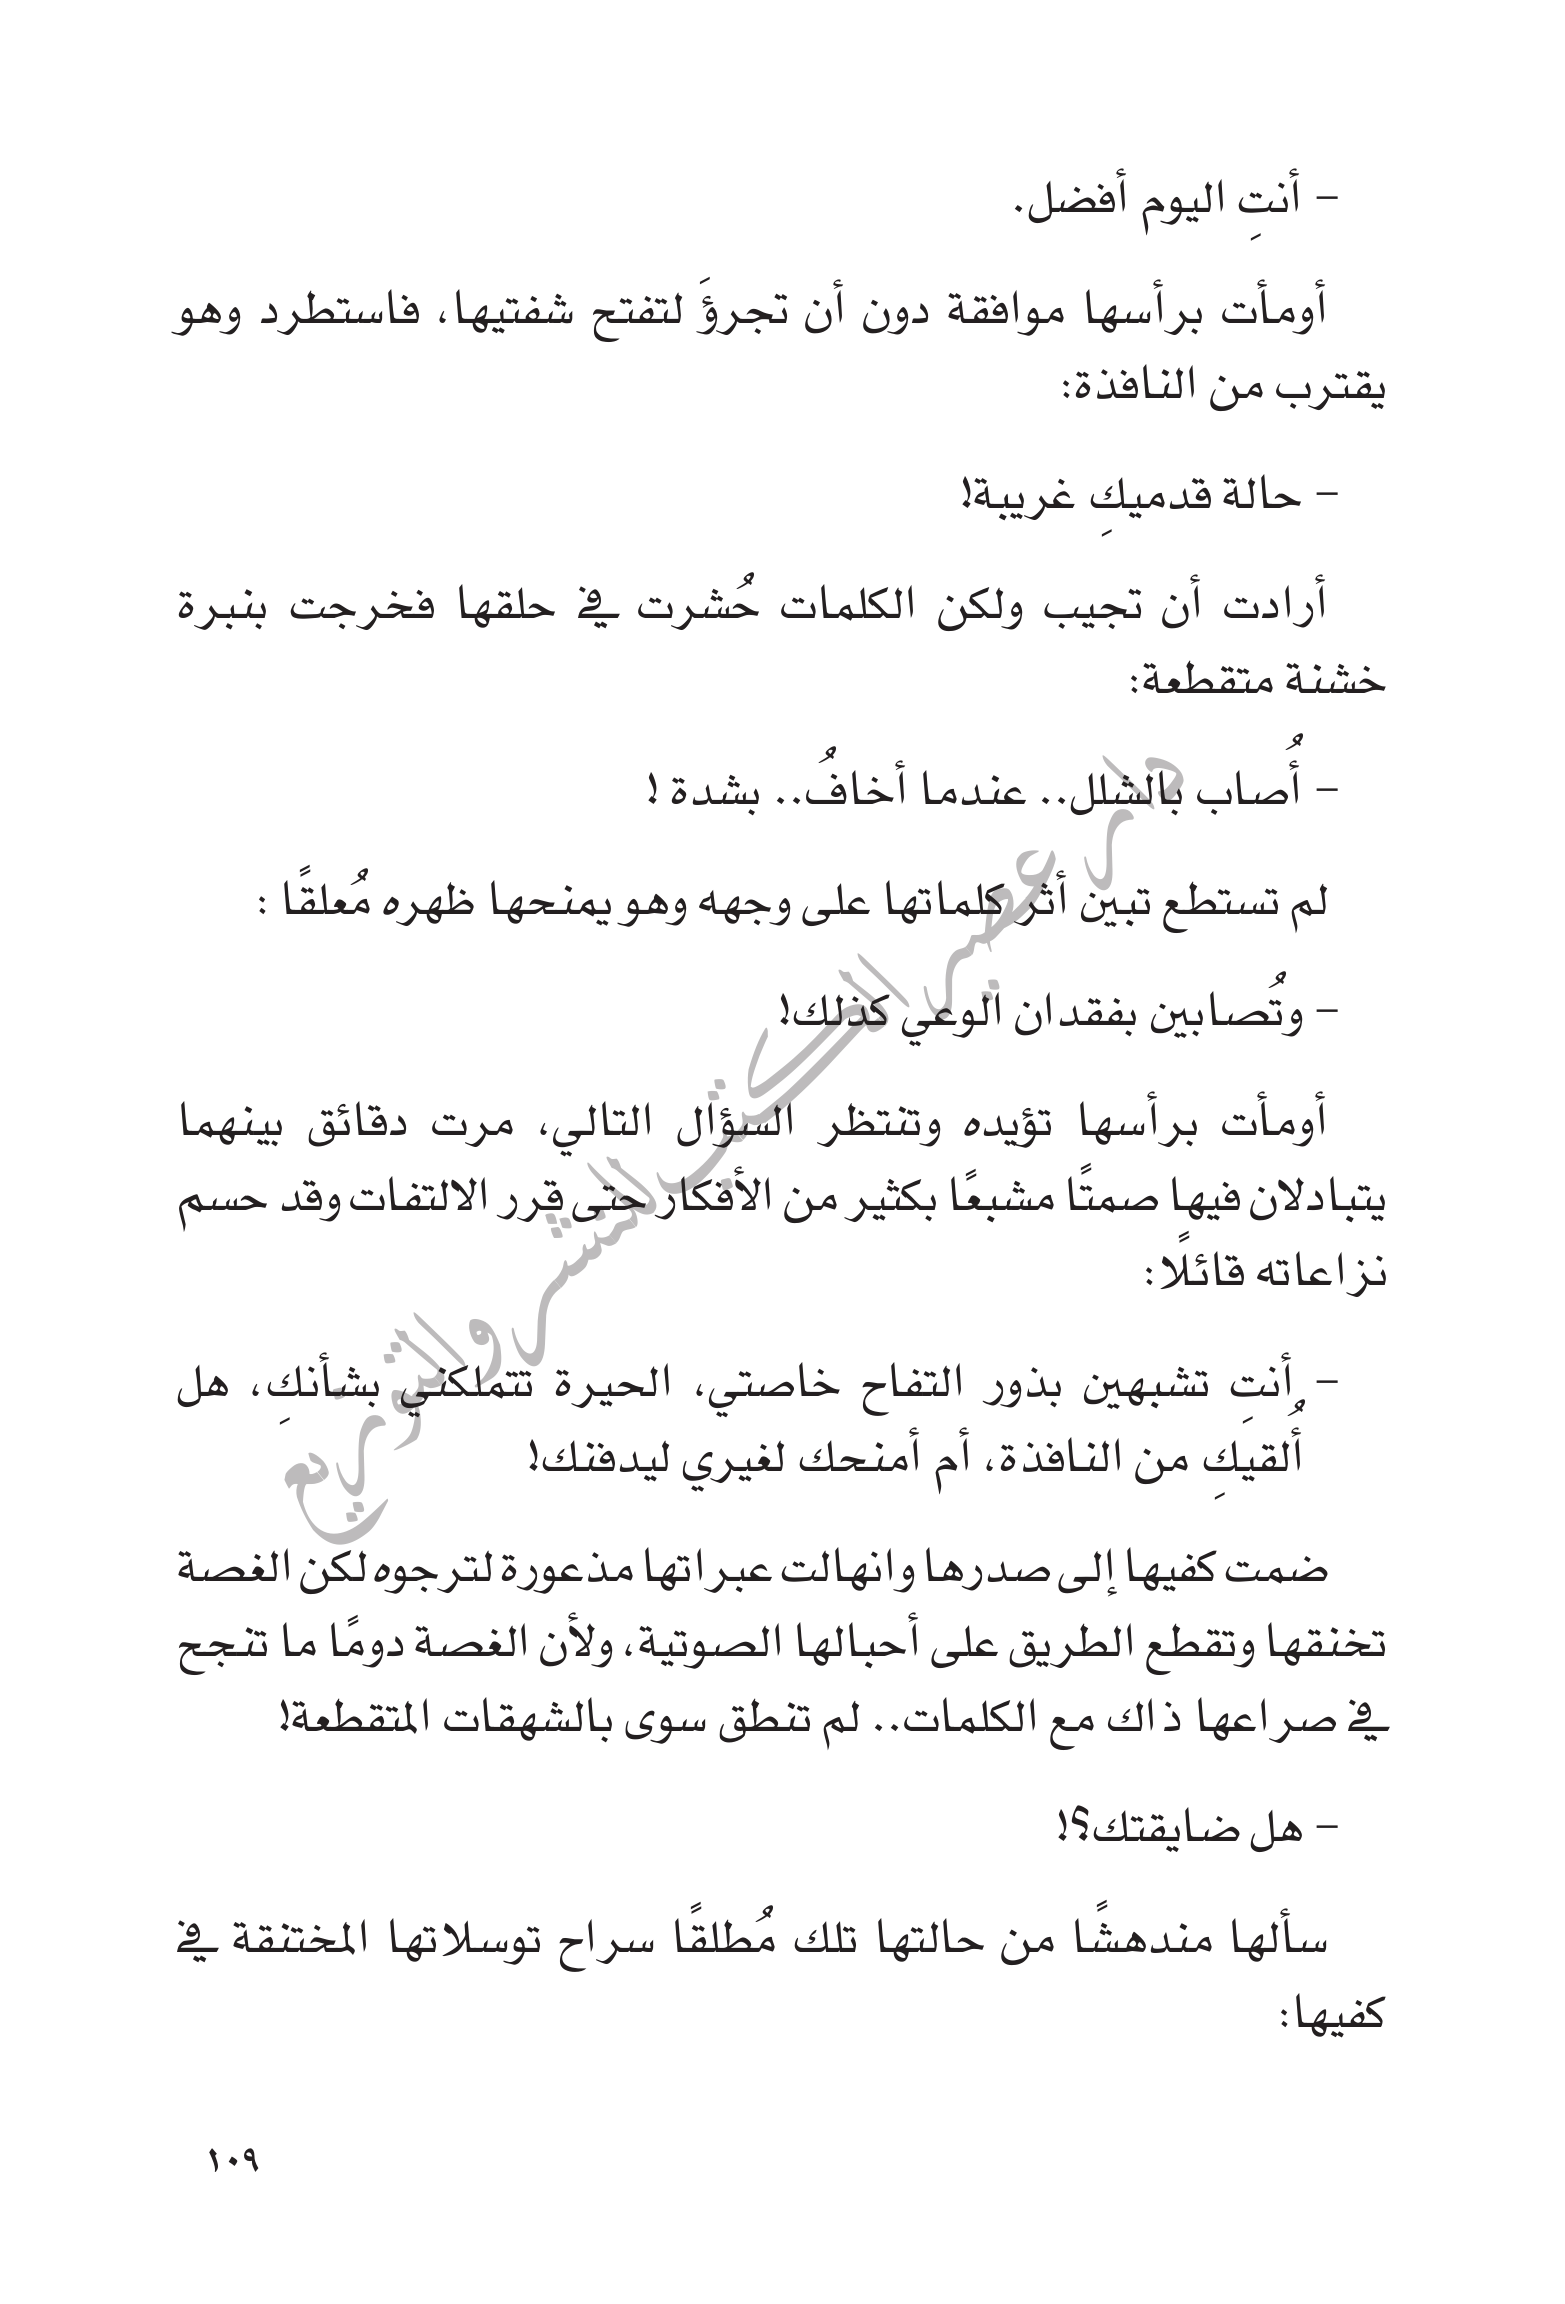 - أنتِ اليوم أفضل.
أومأت برأسها موافقة دون أن تجرؤَ لتفتح شفتيها، فاستطرد وهو
يقترب من النافذة:
- حالة قدميكِ غريبة!
أرادت أن تجيب ولكن الكلمات حُشرت في حلقها فخرجت بنبرة
خشنة متقطعة:
- أُصاب بالشلل.. عندما أخافُ.. بشدة !
لم تستطع تبين أثر كلماتها على وجهه وهو يمنحها ظهره مُعلقًا :
- وتُصابين بفقدان الوعي كذلك!
أومأت برأسها تؤيده وتنتظر السؤال التالي، مرت دقائق بينهما
يتبادلان فيها صمتًا مشبعًا بكثير من الأفكار حتى قرر الالتفات وقد حسم
نزاعاته قائلًا:
- أنتِ تشبهين بذور التفاح خاصتي، الحيرة تتملكني بشأنكِ، هل
أُلقيكِ من النافذة، أم أمنحك لغيري ليدفنك!
ضمت كفيها إلى صدرها وانهالت عبراتها مذعورة لترجوه لكن الغصة
تخنقها وتقطع الطريق على أحبالها الصوتية، ولأن الغصة دومًا ما تنجح
في صراعها ذاك مع الكلمات.. لم تنطق سوى بالشهقات المتقطعة!
- هل ضايقتك؟!
سألها مندهشًا من حالتها تلك مُطلقًا سراح توسلاتها المختنقة في
كفيها:
١٠٩
دار عصير الكتب للنشر والتوزيع